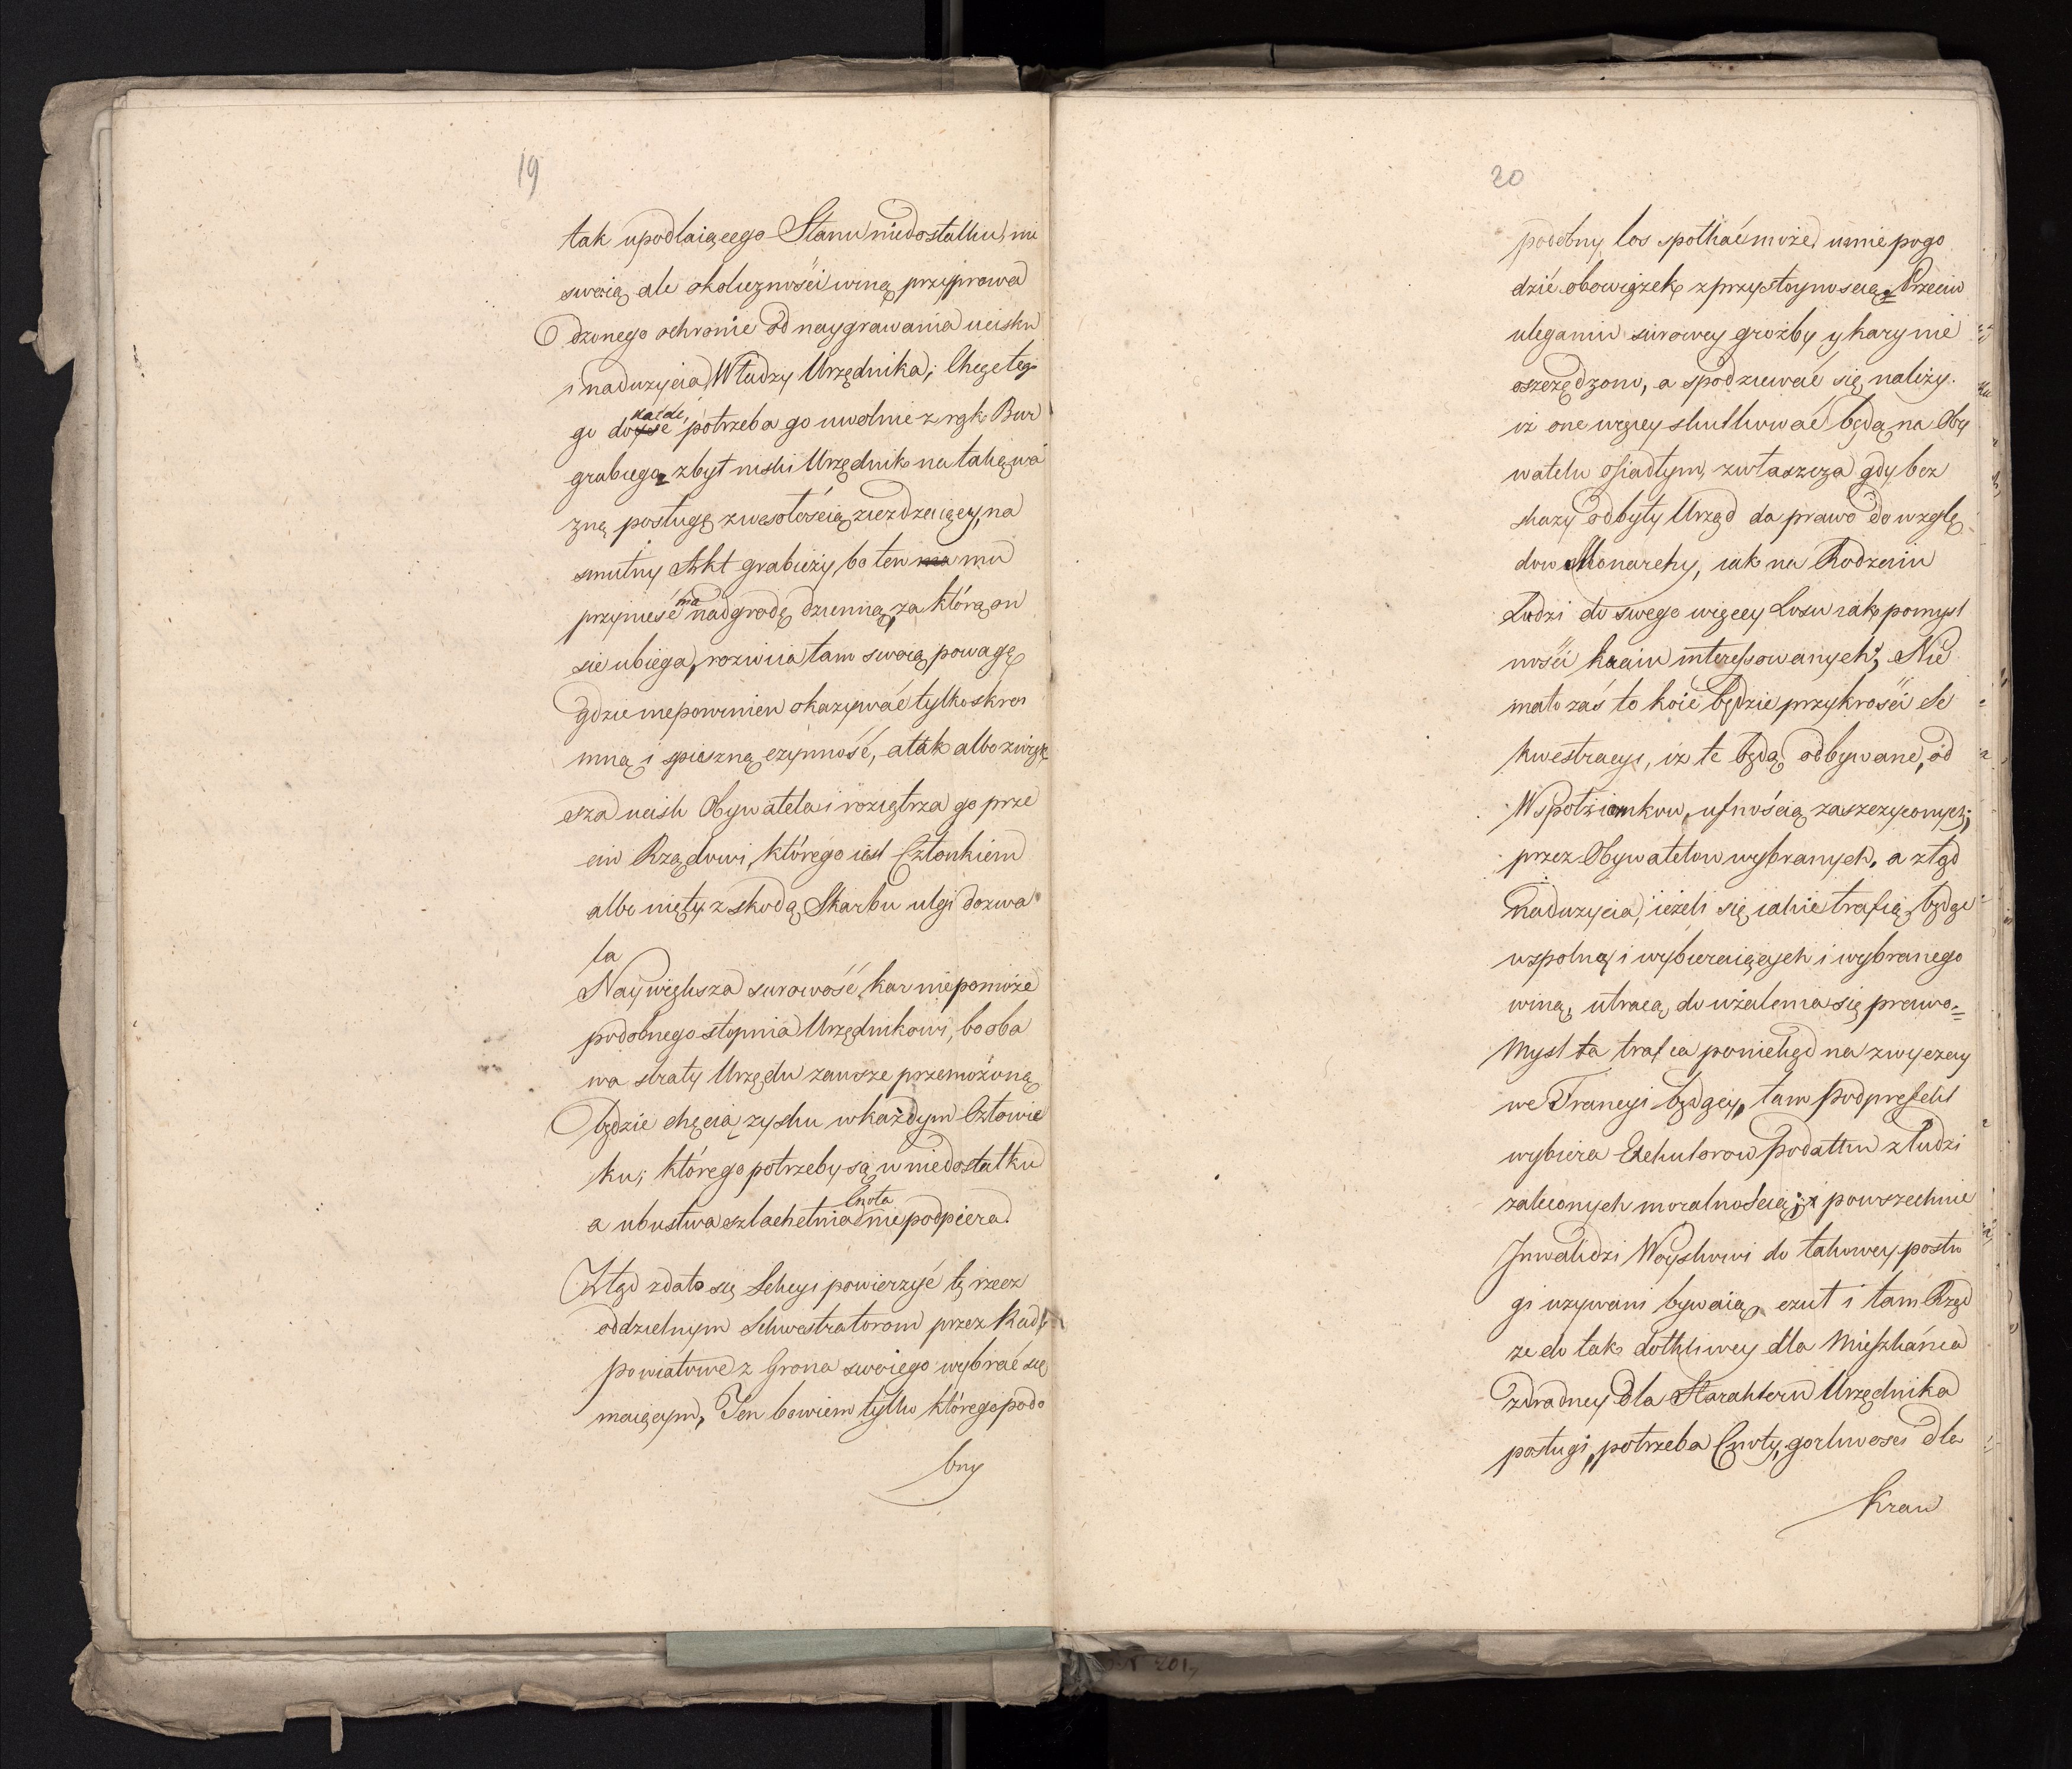 19
tak upodlaiącego Stanu niedostatku, nie
swoią ale okoliczności winą przyprowa
dzonego ochronić od naygrawania ucisku
i nadużycia Władzy Urzędnika; Chcąc tego
go potrzeba go uwolnić z rąk Bur
grabiego zbyt niski Urzędnik na taką wa
żną posługę z wesołością ziezdzaiący, na
smutny Akt grabieży, bo ten mu
przynieść ma nadgrodę dzienną, za którą on
sie ubiega, rozwiia tam swoią powagę
gdzie niepowinien okazywać tylko skro
mną i spieszną czynność, a tak albo zwięk
sza ucisk Obywatela i roziątrza go prze
ciw Rządowi, którego iest Członkiem
albo uięty z skodą Skarbu ulgi dozwa
la
Naywiększa surowość kar niepomoże
podobnego stopnia Urzędnikowi, bo oba
wa straty Urzędu zawsze przemożoną
będzie chęcią zysku w każdym Człowie
ku, którego potrzeby są w niedostatku
a ubustwa szlachetnia Cnota niepodpiera.
Ztąd zdało się Sekcyi powierzyć tę rzecz
oddzielnym Sekwestratorom przez Rady
powiatowe z Grona swoiego wybrać się
maiącym, Ten bowiem tylko którego podo
bny
20
podobny los spotkać może, umie pogo
dzić obowiązek z przystoynoscią. Przeciw
uleganiu surowey groźby y kary nie
oszczędzono, a spodziewać się należy.
iż one więcey skutkować będą na Oby
watelu osiadłym, zwłaszcza gdy bez
skazy odbyty Urząd da prawo do wzglę
dow Monarchy, iak na Rodzaiu
Ludzi do swego więcey Losu iak pomysl
ności kraiu interessowanych; Nie
mało zaś to koić będzie przykrości Se
kwestracyi, iż te będą odbywane, od
Wspołziomkow, ufnością zaszczyconych;
przez Obywatelow wybranych, a ztąd
nadużycia, ieżeli się iakie trafią, będąc
wspolną i wybieraiących i wybranego
winą, utracą do użalenia się prawo.=
Mysl ta trafia poniekąd na zwyczay
we Francyi będący, tam Podprefekt
wybiera Exekutorow podatku z ludzi
zaleconych moralnością; powszechnie
Inwalidzi Woyskowi do takowey posłu
gi uzywani bywaią, czuł i tam Rząd
że do tak dotkliwey dla Mieszkańca
zdradney dla Karakteru Urzędnika
posługi, potrzeba Cnoty, gorliwosci dla
Kraiu